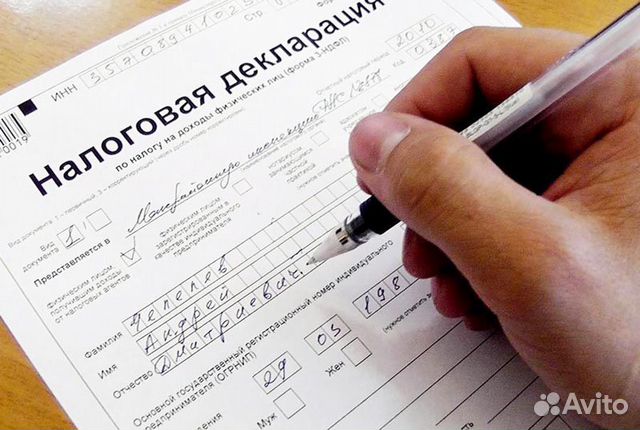 ИНН 3570894102
0019
Налоговая декларация
по налогу на доходы физических лиц (форма 3-НДФЛ)
Отчетный налоговый период 2010
Код 0387
Вид документа: 1 - первичный, 3 - корректирующий (через дробь номер корректировки)
Вид документа 1 /
Представляется в
наименование налогового органа
(нужное отметить
физическим лицом, получившим доходы от налоговых агентов
физическим лицом, зарегистрированным в качестве индивидуального предпринимателя
нотариусом, занимающимся частной практикой
адвокатом
Фамилия Чепелев
Имя Андрей
Отчество Дмитриевич
Основной государственный регистрационный номер индивидуального
предпринимателя (ОГРНИП)
29 03 198
(нужное отметить
Муж Жен
Место
Avito